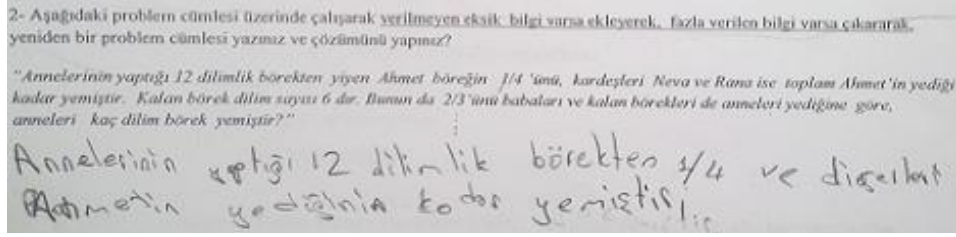 2- Aşağıdaki problem cümlesi üzerinde çalışarak verilmeyen eksik bilgi varsa ekleyerek, fazla verilen bilgi varsa çıkararak,
yeniden bir problem cümlesi yazınız ve çözümünü yapınız?
"Annelerinin yaptığı 12 dilimlik börekten yiyen Ahmet böreğin 1/4 'ünü, kardeşleri Neva ve Rana ise toplam Ahmet'in yediği
kadar yemiştir. Kalan börek dilim sayısı 6 dır. Bunun da 2/3'ünü babaları ve kalan börekleri de anneleri yediğine göre,
anneleri kaç dilim börek yemiştir?"
Annelerinin yaptığı 12 dilimlik börekten 1/4 ve
Ahmetin yediğinin kadar yemiştir